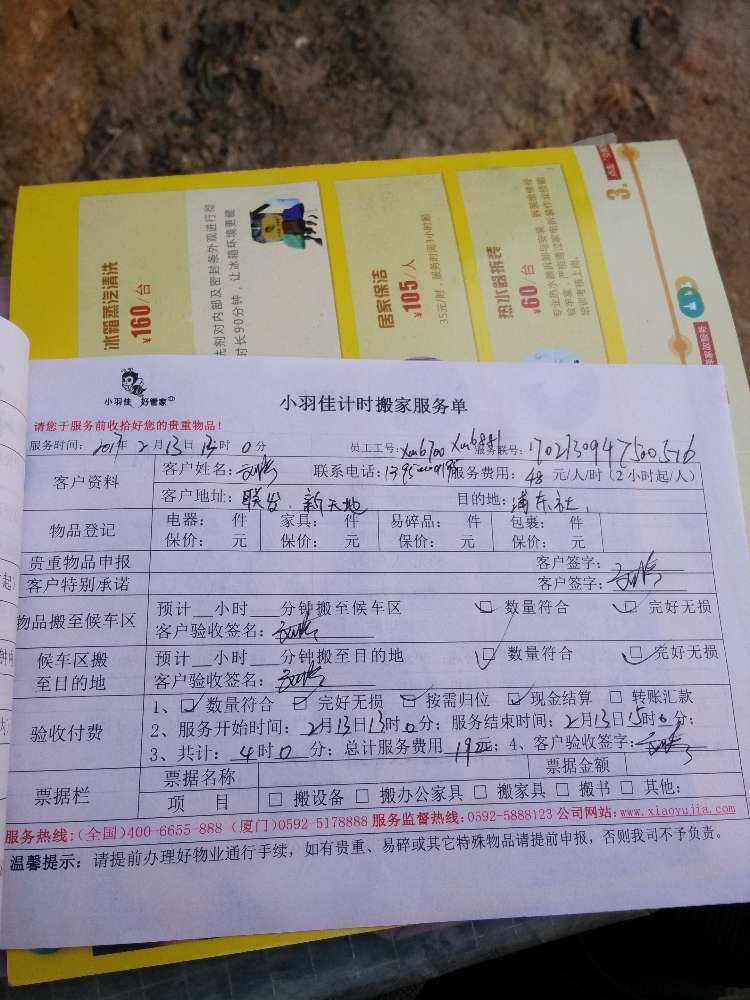 冰箱蒸汽清洗
¥160/台
洗剂对内部及密封条外观进行彻
时长90分钟，让冰箱环境更健
居家保洁
¥105/人
35元/时，服务时间3小时起
热水器拆装
¥60/台
专业热水器拆卸与安装
培训考核上岗。
3.
小羽佳 好管家
小羽佳计时搬家服务单
请您于服务前收拾好您的贵重物品！
服务时间：2017年2月13日13时0分 员工工号：Xm6700 服务联号：
客户资料 客户姓名： 联系电话： 服务费用：48元/人/时（2小时起/人）
客户地址：联发.新天地 目的地：浦东社
物品登记 电器： 件 家具： 件 易碎品： 件 包裹： 件
保价： 元 保价： 元 保价： 元 保价： 元
贵重物品申报 客户签字：
客户特别承诺 客户签字：
物品搬至候车区 预计__小时___分钟搬至候车区 数量符合 完好无损
客户验收签名：
候车区搬至目的地 预计__小时___分钟搬至目的地 数量符合 完好无损
客户验收签名：
验收付费 1、数量符合 完好无损 按需归位 现金结算 转账汇款
2、服务开始时间：2月13日13时0分；服务结束时间：2月13日15时0分；
3、共计：4时0分；总计服务费用192元；4、客户验收签字：
票据栏 票据名称 票据金额
项 目 搬设备 搬办公家具 搬家具 搬书 其他：
服务热线：(全国)400-6655-888 (厦门)0592-5178888 服务监督热线：0592-5888123 公司网站：www.xiaoyujia.com
温馨提示：请提前办理好物业通行手续，如有贵重、易碎或其它特殊物品请提前申报，否则我司不予负责。